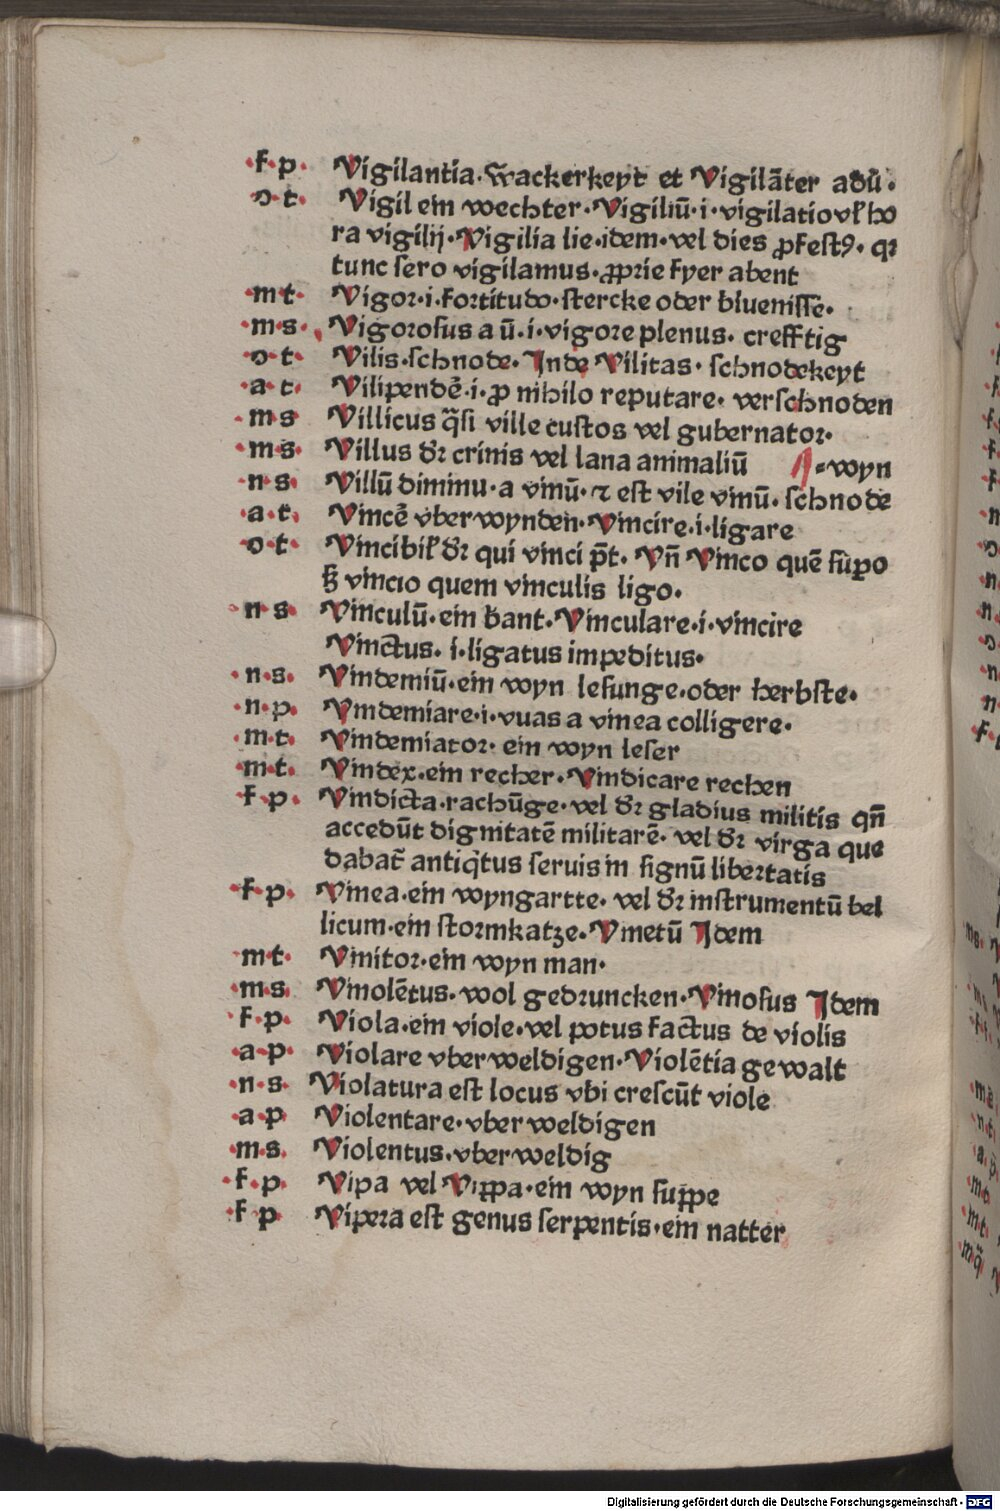 ·f·p· Vigilantia·Wackerkeyt et Vigilāter adū·
·o·t· Vigil ein wechter·Vigiliū·i·vigilatio vł ho
ra vigilij·Vigilia lie·idem·vel dies ꝓfestꝰ· qꝛ
tunc sero vigilamus·ꝓprie fyer abent
·m·t· Vigor·i·fortitudo·stercke oder bluenisse·
·m·s· Vigorosus a ū·i·vigore plenus· crefftig
·o·t· Vilis·schnode·Inde Vilitas· schnodekeyt
·a·t· Vilipendē·i·ꝓ nihilo reputare· verschnoden
·m·s Villicus q̄si ville custos vel gubernator·
·m·s· Villus dꝛ crinis vel lana animaliū ⸗wyn
·n·s· Villū diminu·a vinū·⁊ est vile vinū· schnode
·a·t· Vincē vber wynden·Vincire·i·ligare
·o·t· Vincibił dꝛ qui vinci p̄t· Vn̄ Vinco quē supo
sꝫ vincio quem vinculis ligo·
·n·s· Vinculū·ein bant·Vinculare·i·vincire
Vinctus· i·ligatus impeditus·
·n·s· Vindemiū·ein wyn lesunge·oder herbste·
·n·p· Vindemiare·i·vuas a vinea colligere·
·m·t· Vindemiator· ein wyn leser
·m·t· Vindex·ein recher·Vindicare rechen
·f·p· Vindicta·rachūge·vel dꝛ gladius militis qn̄
accedūt dignitatē militarē· vel dꝛ virga que
dabat̄ antiq̇tus seruis in signū libertatis
·f·p· Vinea·ein wyngartte· vel dꝛ instrumentū bel
licum·ein stormkatze·Vinetū Idem
·m·t· Vinitor·ein wyn man·
·m·s· Vinolētus·wol gedruncken·Vinosus Idem
·f·p· Viola·ein viole·vel potus factus de violis
·a·p· Violare vber weldigen·Violētia gewalt
·n·s· Violatura est locus vbi crescūt viole
·a·p Violentare·vber weldigen
·m·s· Violentus·vber weldig
·f·p· Vipa vel Vippa·ein wyn suppe
·f·p Vipera est genus serpentis·ein natter
Digitalisierung gefördert durch die Deutsche Forschungsgemeinschaft - DFG